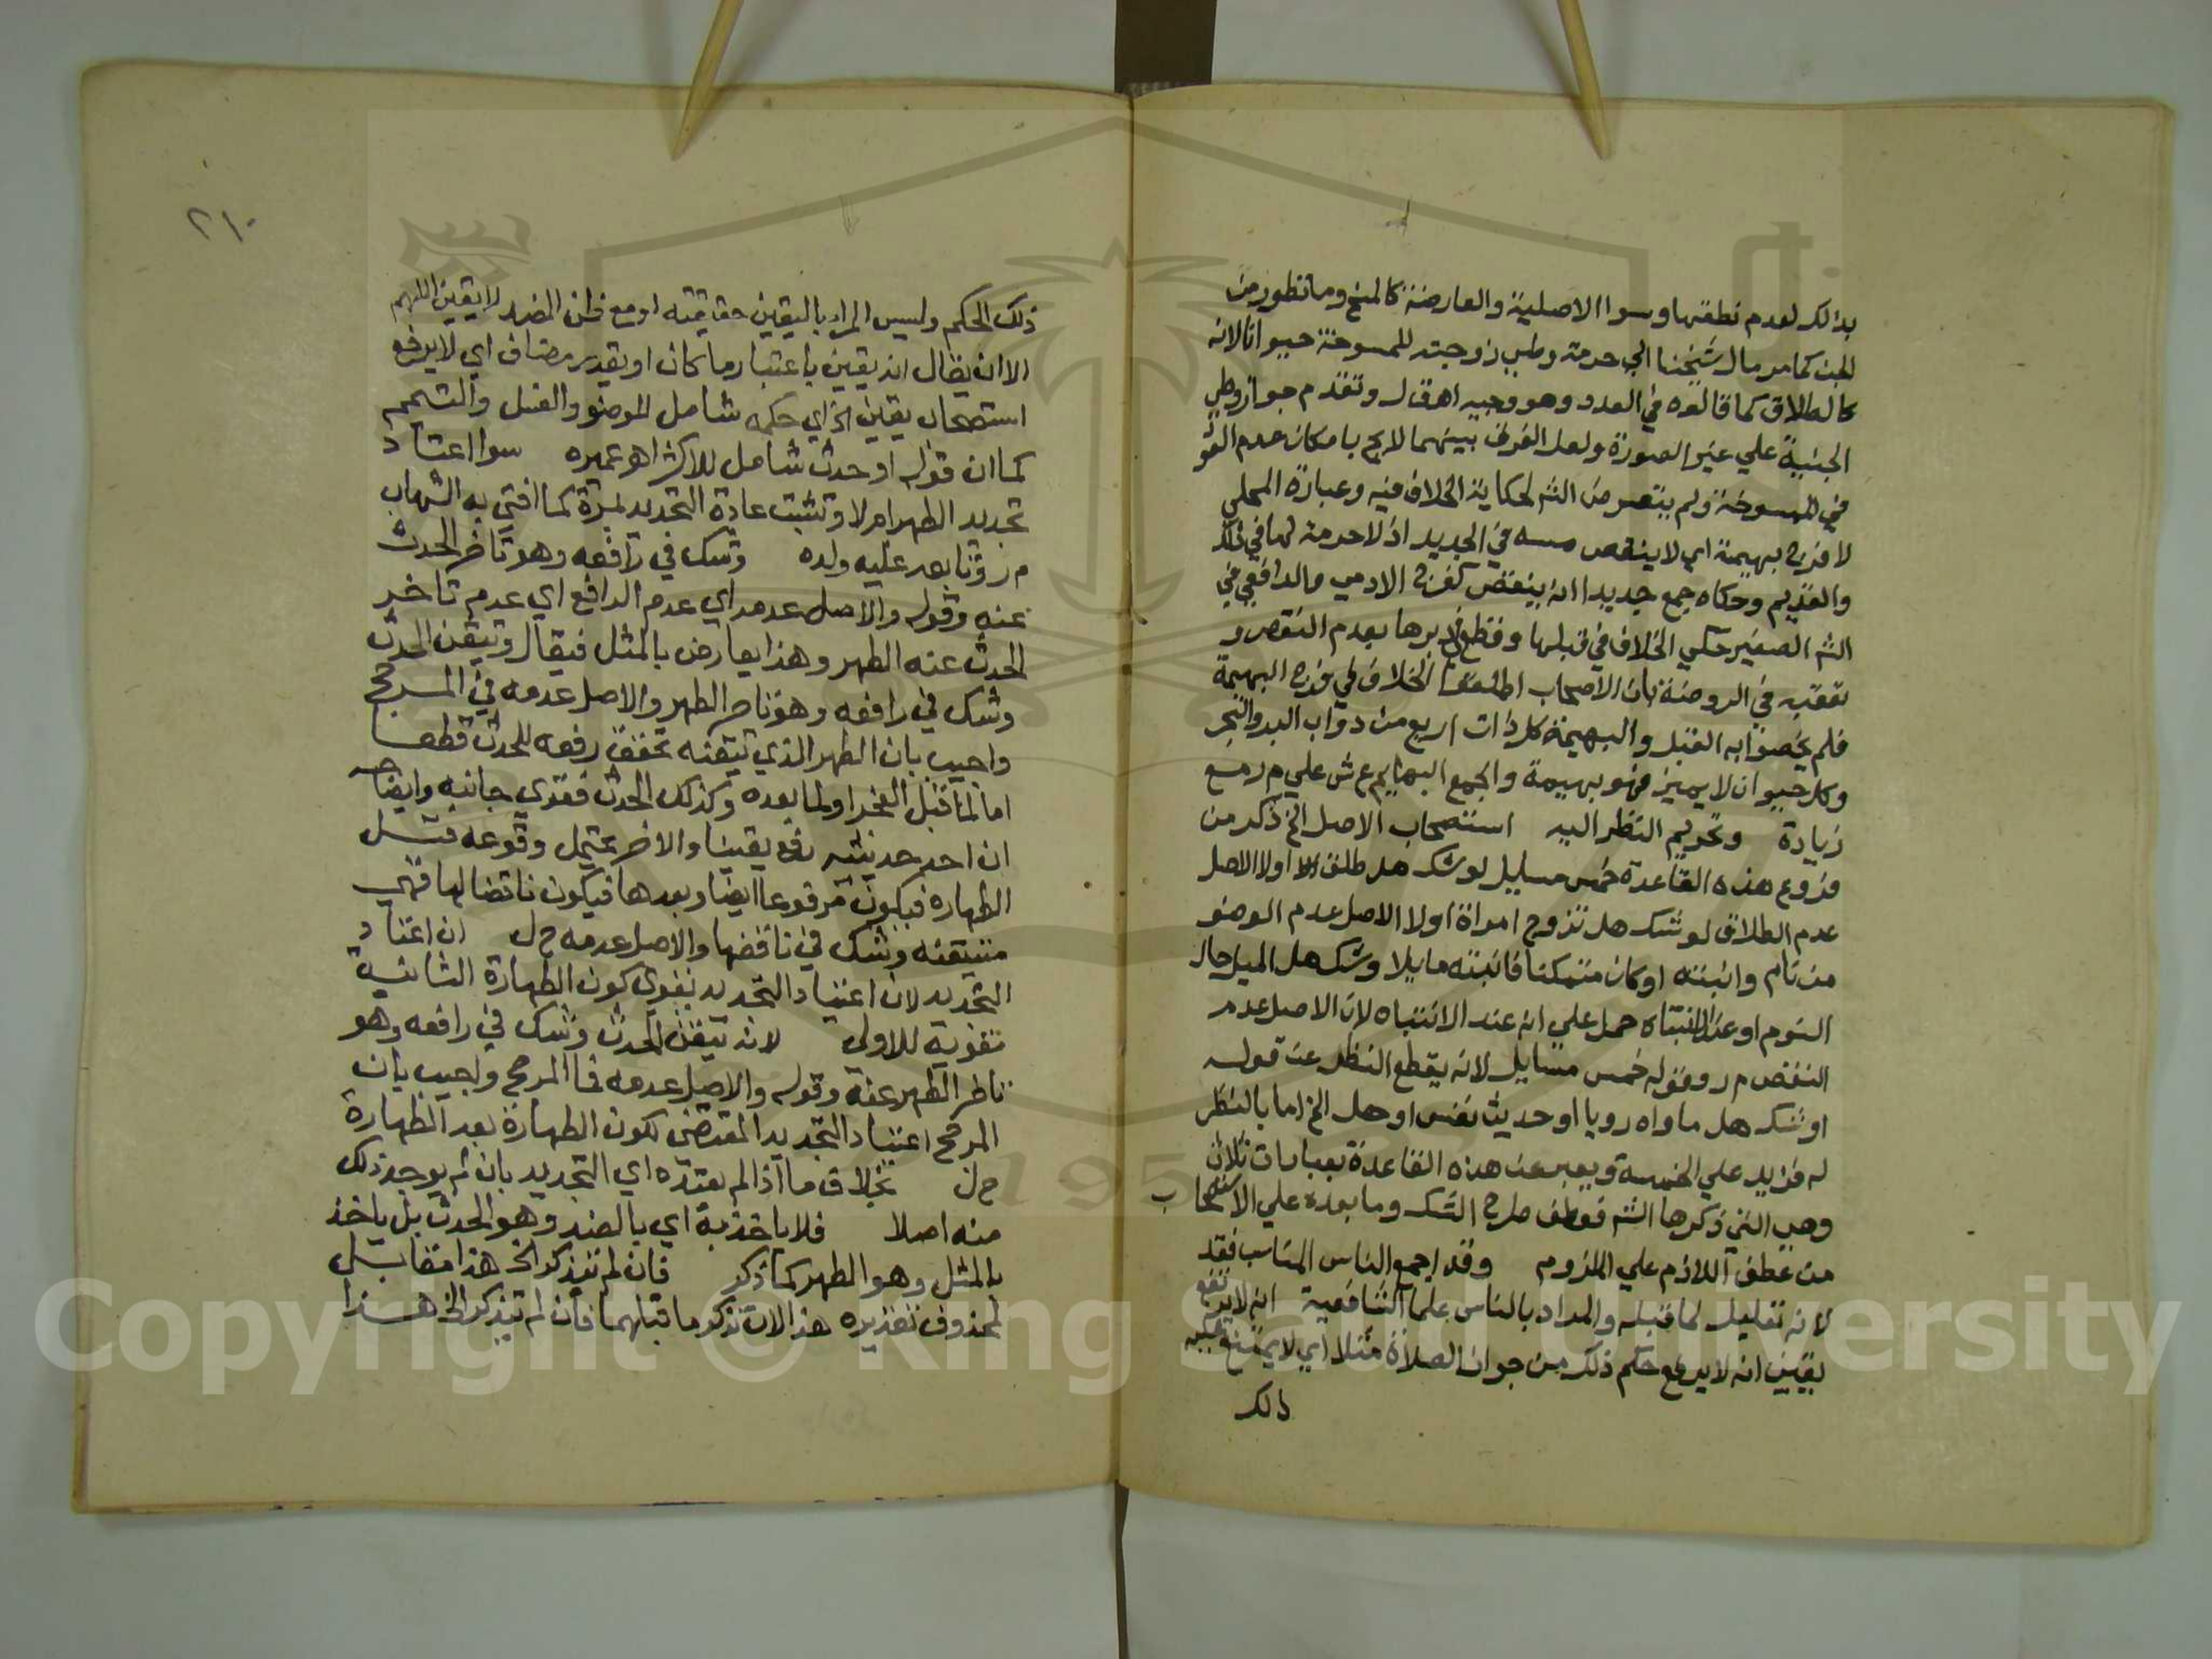 بذلك لعدم نطقها وسوا الاصلية والعارضة كالمسخ وما تطور من
الجن كما مر مال شيخنا الي حرمة وطي زوجته الممسوخة حيوانا لانه
كالطلاق كما قالوه في العدد وهو وجيه اهـ ق ل وتقدم جواز وطي
الجنية علي غير الصورة ولعل الفرق بينهما لايح بامكان عدم العود
في الممسوخة ولم يتعرض الشم لحكاية الخلاف فيه وعبارة المحلي
لا فرج بهيمة اي لا ينقض مسه في الجديد اذ لا حرمة لها في ذلك
والقديم وحكاه جمع جديدا انه ينقض كفرج الادمي والرافعي في
الشم الصغير حكي الخلاف في قبلها وقطع في دبرها بعدم النقض و
تعقبه في الروضة بان الاصحاب اطلقوا الخلاف في فرج البهيمة
فلم يخصوا به القبل والبهيمة كل ذات اربع من دواب البر والبحر
وكل حيوان لا يميز فهو بهيمة والجمع البهايم ع ش علي م ر مع
زيادة وتحريم النظر اليه استصحاب الاصل الخ ذكر من
فروع هذه القاعدة خمس مسايل لو شك هل طلق ام لا اولا الاصل
عدم الطلاق لو شك هل تزوج امراة اولا الاصل عدم الوضو
من نام وانتبه او كان متمكنا فانتبه مايلا وشك هل الميل حال
النوم او عند الانتباه حمل علي انه عند الانتباه لان الاصل عدم
النقض م ر وقوله خمس مسايل لانه يقطع النظر عن قوله
او شك هل ما راه رويا او حديث نفس او هل الخ اما بالنظر
له فتزيد علي الخمسة ويعبر عن هذه القاعدة بعبارات ثلاث
وهي التي ذكرها الشم فعطف طرح الشك وما بعده علي الاستصحاب
من عطف اللازم علي الملزوم وقد اجمع الناس المناسب فقد
لانه تعليل لما قبله والمراد بالناس علما الشافعية انه لا يرتفع
يقين انه لا يرفع حكم ذلك من جواز الصلاة مثلا اي لا يمتنع عليه
ذلك
٢١٠
ذلك الحكم وليس المراد باليقين حقيقته او مع ظن الضد لا يقين اللهم
الا ان يقال انه يقين باعتبار ما كان او تقدير مضاف اي لا يرفع
استصحاب يقين الخ اي حكمه شامل للوضو والغسل والتيمم
كما ان قوله او حدث شامل للاكبر اهـ عميره سوا اعتاد
تجديد الطهر ام لا وتثبت عادة التجديد بمرة كما افتي به الشهاب
م ر وتابعه عليه ولده وشك في رافعه وهو تاخر الحدث
عنه وقوله والاصل عدمه اي عدم الرافع اي عدم تاخر
الحدث عنه الطهر وهذا يعارض بالمثل فيقال وتيقن الحدث
وشك في رافعه وهو تاخر الطهر والاصل عدمه في المرجح
واجيب بان الطهر الذي تيقنه تحقق رفعه للحدث قطعا
اما لما قبل الفجر او لما بعده وكذلك الحدث فقوي جانبه وايضاحه
ان احد حدثيه رفع يقينا والاخر يحتمل وقوعه قبل
الطهارة فيكون مرفوعا ايضا وبعدها فيكون ناقضا لها فهي
متيقنه وشك في ناقضها والاصل عدمه ح ل ان اعتاد
التجديد لان اعتياد التجديد يقوي كون الطهارة الثانية
تقوية للاولي لانه تيقن الحدث وشك في رافعه وهو
تاخر الطهر عنه وقوله والاصل عدمه فما المرجح واجيب بان
المرجح اعتياد التجديد المقتضي لكون الطهارة بعد الطهارة
ح ل بخلاف ما اذا لم يعتده اي التجديد بان لم يوجد ذلك
منه اصلا فلا ياخذ به اي بالضد وهو الحدث بل ياخذ
بالمثل وهو الطهر كما ذكر فان لم يتذكر الخ هذا مقابل
لمحذوف تقديره هذا الان تذكر ما قبلهما فان لم يتذكر الخ هذا
Copyright © King Saud University
195